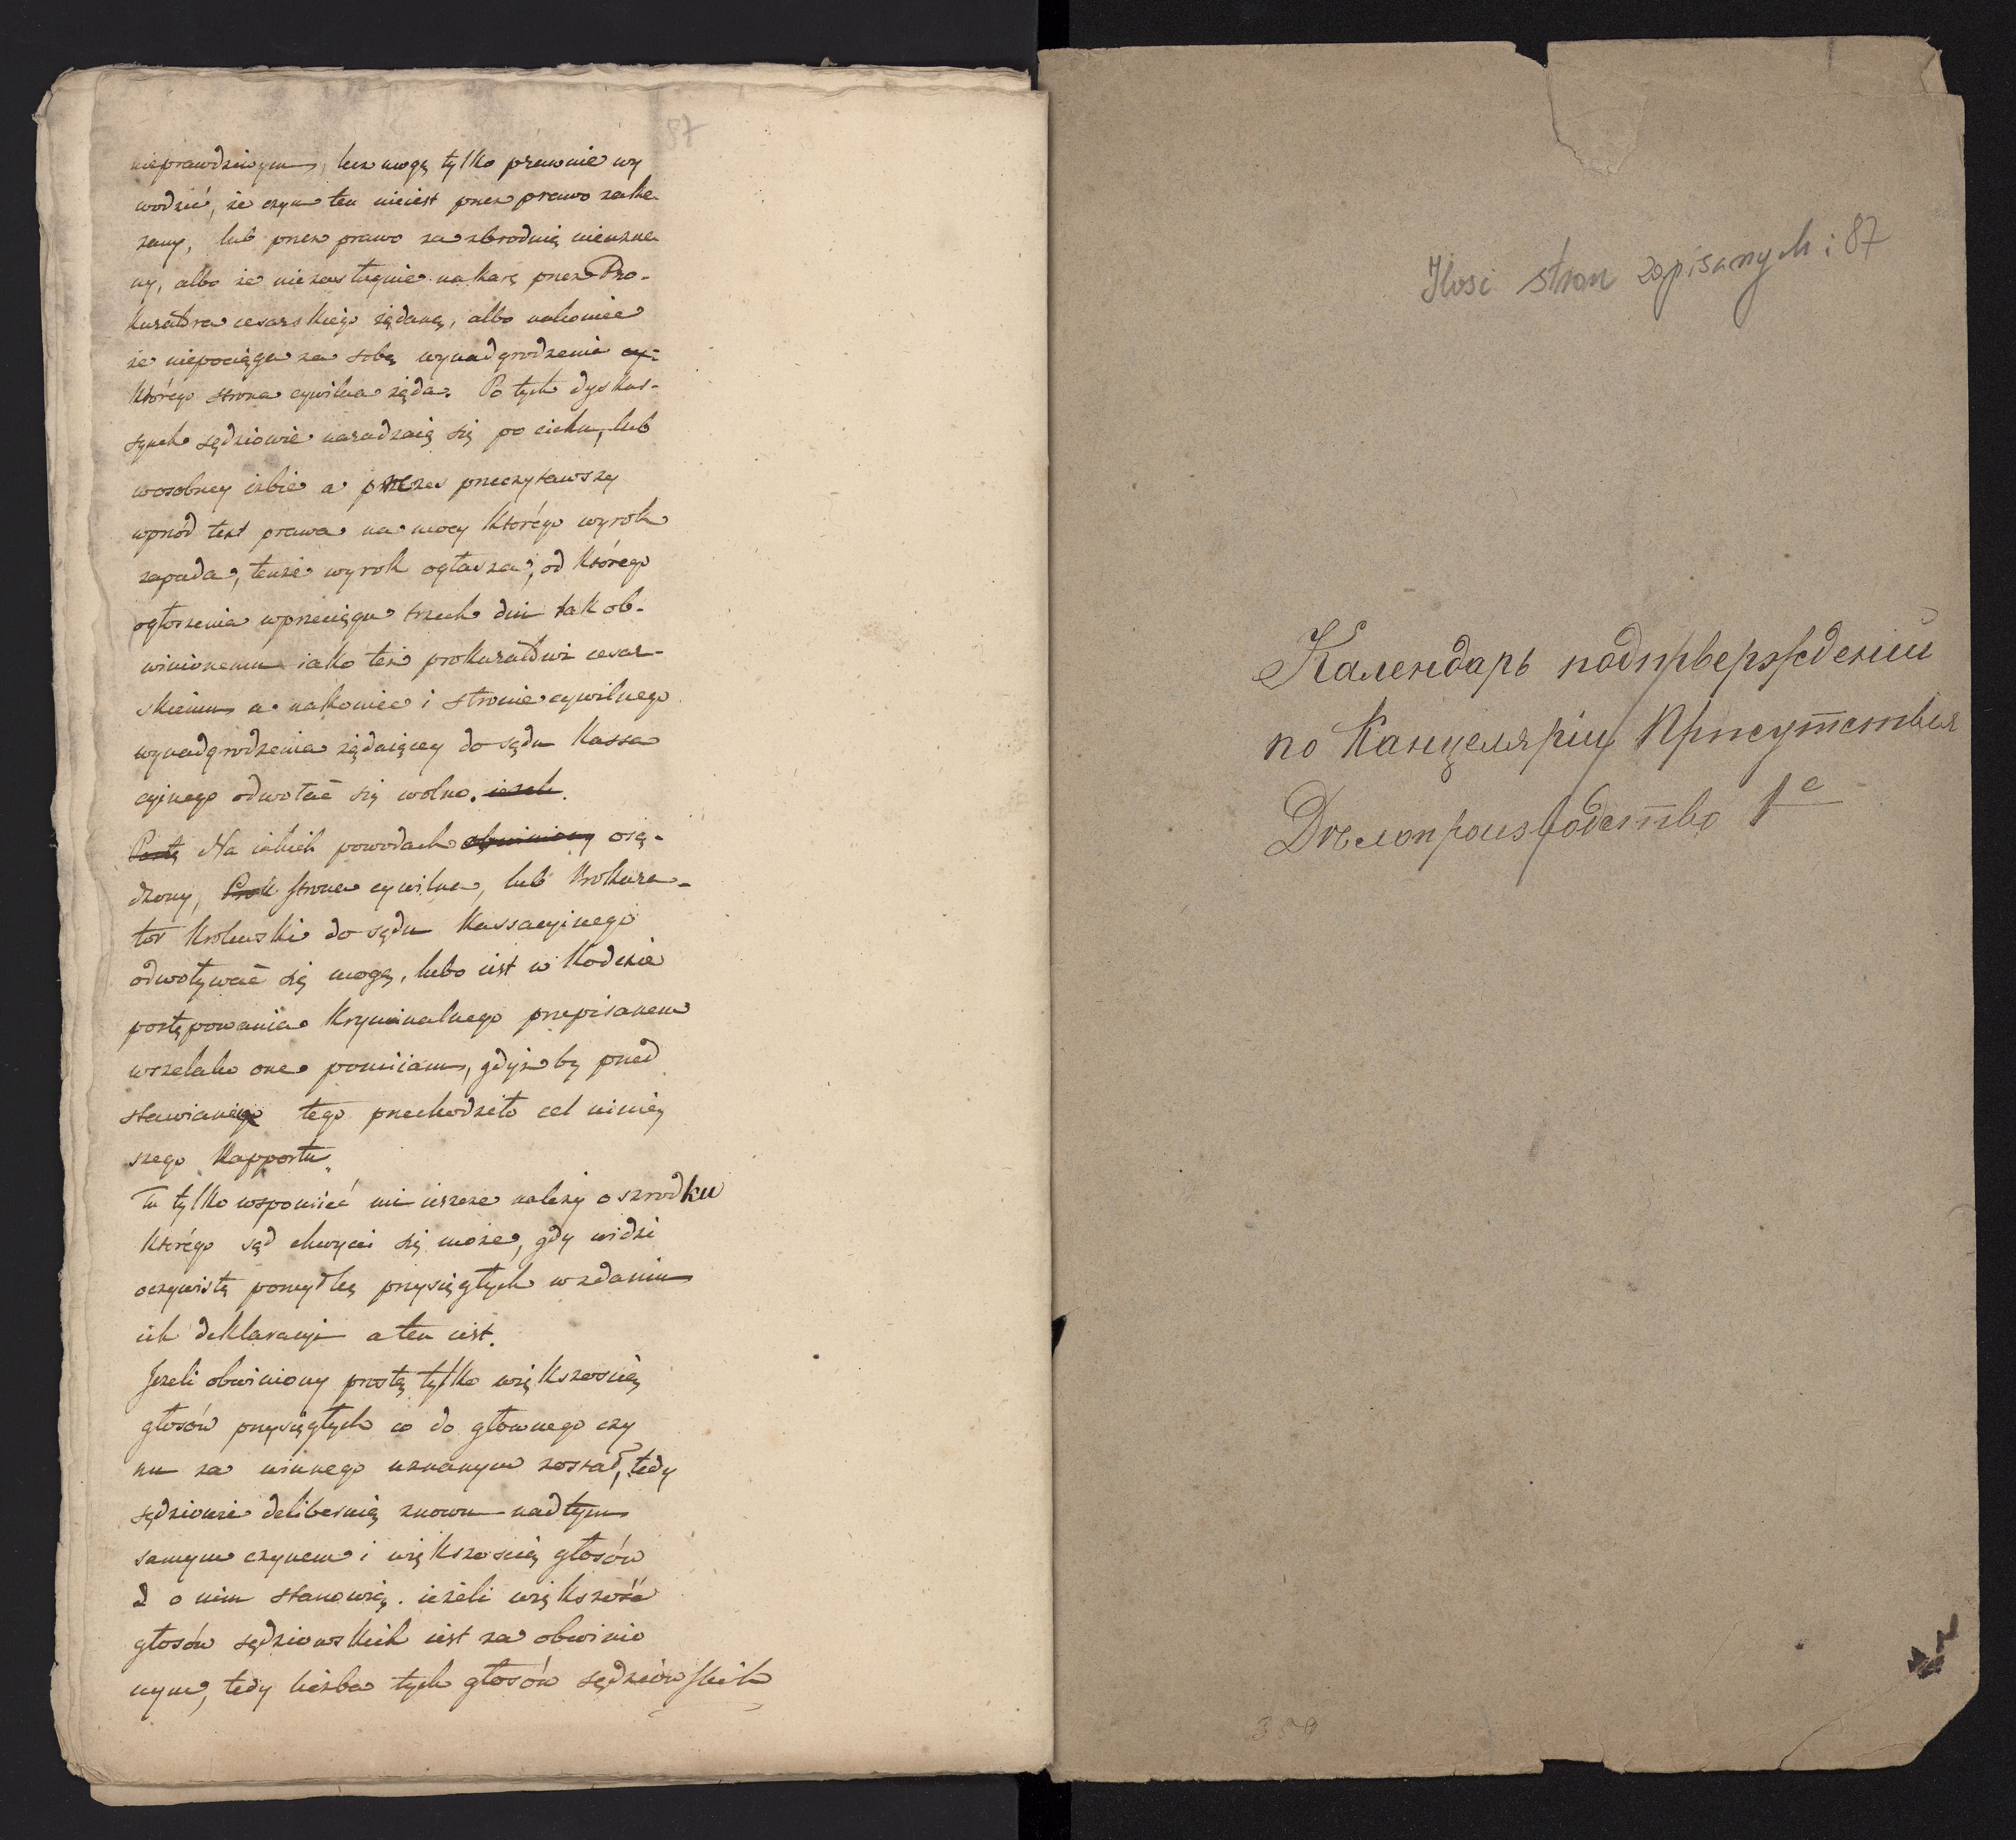 87
nieprawdziwym, lecz mogą tylko prawnie wy
wodzić, że czyn ten nieiest przez prawo zaka
zany, lub przez prawo za zbrodnią nieuzna
ny, albo że niezasługuie na karę przez Pro-
kuratora cesarskiego żądaną, albo nakoniec
że niepociąga za sobą wynadgrodzenia cy-
którego strona cywilna żąda. Po tych dyskus-
syach sędziowie naradzaią się po cichu, lub
wosobney izbie a prezes przeczytawszy
wprzód text prawa na mocy którego wyrok
zapada, tenże wyrok ogłasza, od którego
ogłoszenia wprzeciągu trzech dni tak ob-
winionemu iako też prokuratorowi cesar-
skiemu a nakoniec i stronie cywilnego
wynadgrodzenia żądaiącey do sądu Kassa
cyinego odwołać się wolno. ieżeli
Na iakich powodach obwiniony osą-
dzony, Prok strona cywilna, lub Prokura-
tor Krolewski do sądu Kassacyinego
odwoływać się mogą, lubo iest w Kodexie
postępowania Kryminalnego przepisanem
wszelako one pomiiam, gdyż by przed
stawianie tego przechodziło cel niniey
szego Rapportu.
Tu tylko wspomnieć mi ieszcze należy o szrodku
którego sąd chwycić się może, gdy widzi
oczywistą pomyłkę przysięgłych w zdaniu
ich deklaracyi a ten iest.
Jeżeli obwiniony prostą tylko większością
głosów przysięgłych co do głownego czy
nu za winnego uznanym został, tedy
sędziowie deliberuią znowu nad tym
samym czynem i większością głosów
o nim stanowią. ieżeli większość
głosów sędziowskich iest za obwinio
nym, tedy liczba tych głosów sędziowskich
Ilość stron zapisanych: 87
Календарь подтвержденій
по Канцеляріи Присутствія
Дѣлопроизводство 1е